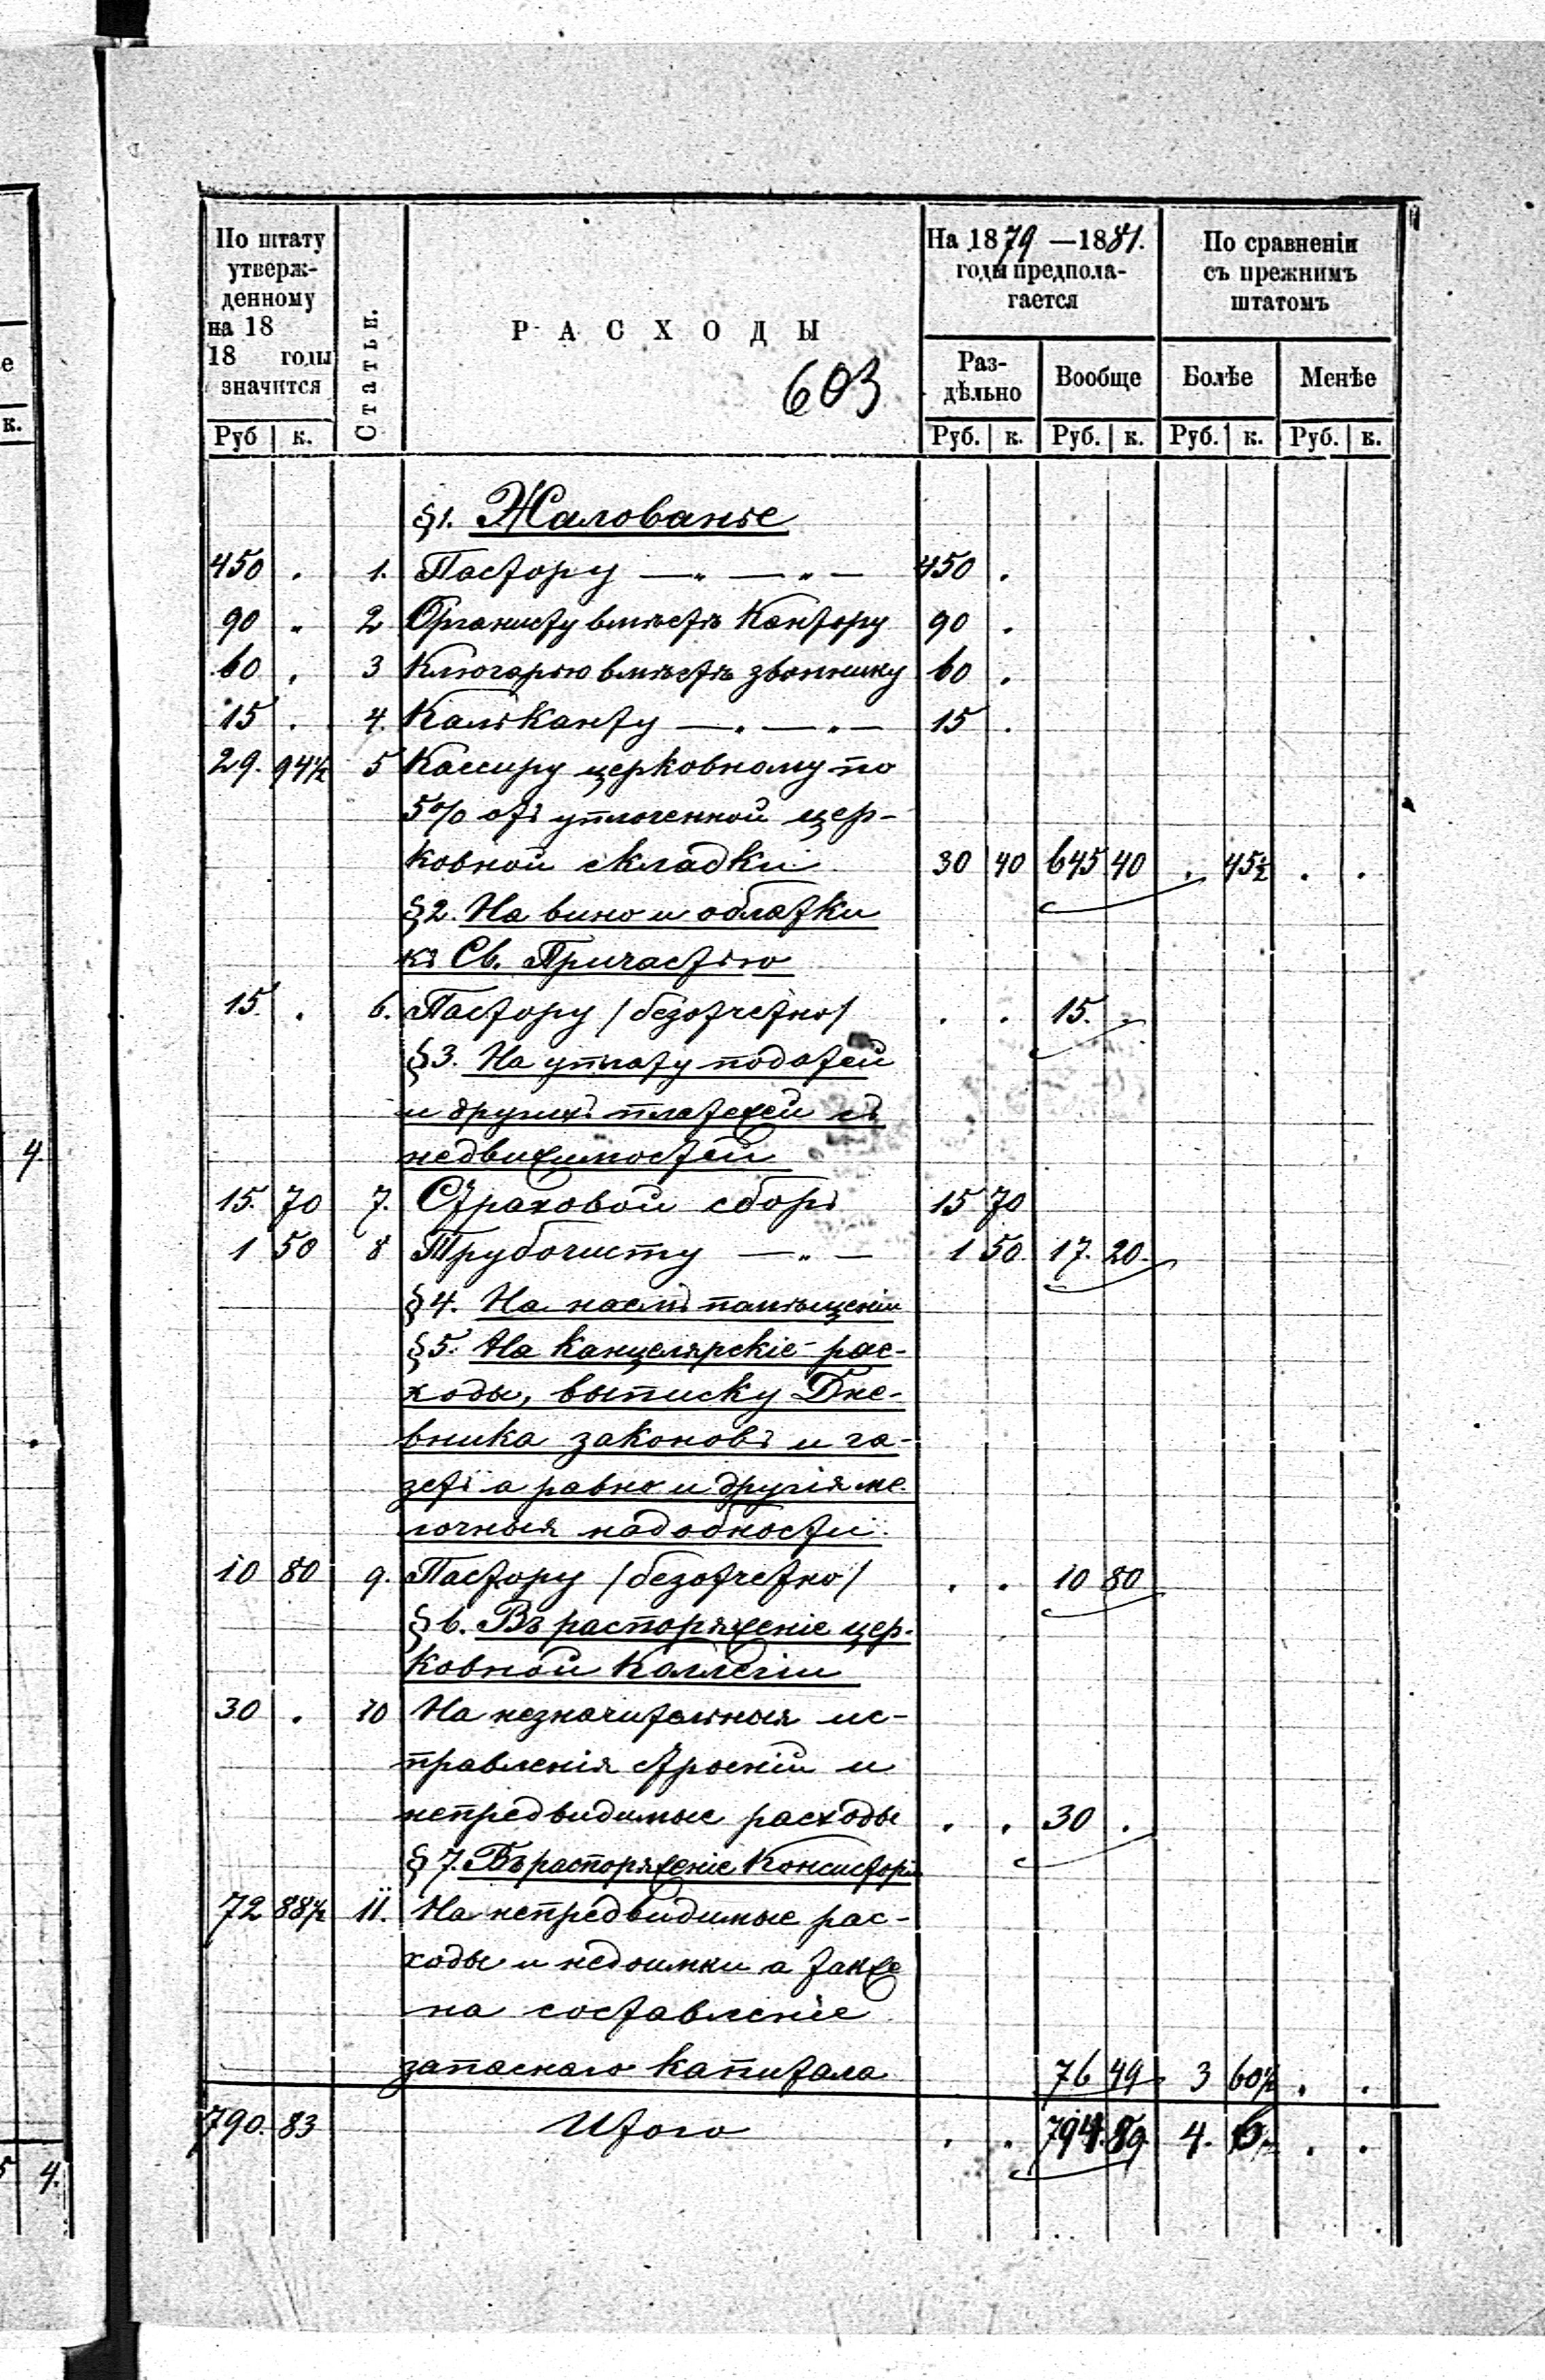 По штату
утверж-
денному
на 18
18 годы
значится
Руб к.
Статьи.
РАСХОДЫ
603
На 1879 —1881.
годы предпола-
гается
Раз-
дѣльно
Вообще
Руб. к. Руб. к.
По сравненіи
съ прежнимъ
штатомъ
Болѣе Менѣе
Руб. к. Руб. к.
§1. Жалованье
450 . 1. Пастору — „ — „ — 450 .
90 „ 2 Органисту вмѣстѣ Кантору 90 .
60 . 3 Ключарю вмѣстѣ звоннику 60 .
15 . 4. Кальканту — „ — „ — 15 .
29. 94½ 5 Кассиру церковному по
5% отъ уплоченной цер-
ковной складки 30 40 645 40 . 45½ . .
§2. На вино и облатки
къ Св. Причастью
15. . 6. Пастору /безотчетно/ . . 15. .
§3. На уплату податей
и другихъ платежей съ
недвижимостей
15. 70 7. Страховой сборъ 15 70
1 50 8 Трубочисту — „ — 1 50. 17. 20.
§4. На наемъ помѣщенія
§5. На Канцелярскіе рас-
ходы, выписку Дне-
вника законовъ и га-
зетъ а равно и другія ме-
лочныя надобности.
10 80 9. Пастору /безотчетно/ . . 10 80
§6. Въ распоряженіе цер-
ковной Коллегіи
30 . 10 На незначительныя ис-
правленія строеній и
непредвидимые расходы . . 30 .
§7. Въ распоряженіе Консисторіи
72 88½ 11. На непредвидимые рас-
ходы и недоимки а также
на составленіе
запаснаго капитала 76 49 3 60½ . .
790. 83 Итого . . 794. 89. 4. 6. . .
е
к.
4.
5 4.